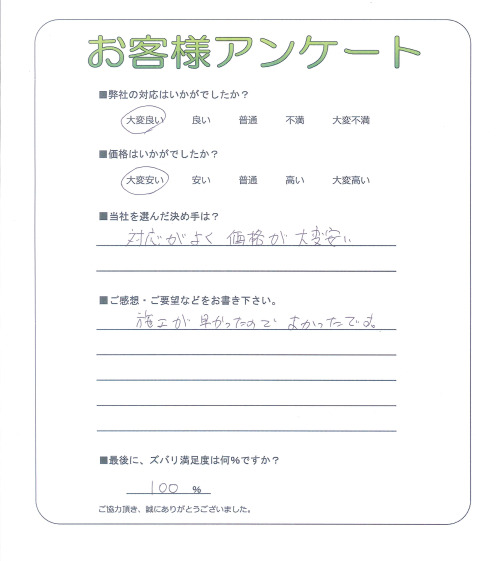 お客様アンケート
■弊社の対応はいかがでしたか？
大変良い 良い 普通 不満 大変不満
■価格はいかがでしたか？
大変安い 安い 普通 高い 大変高い
■当社を選んだ決め手は？
対応がよく 価格が大変安い
■ご感想・ご要望などをお書き下さい。
施工が早かったので よかったです。
■最後に、ズバリ満足度は何%ですか？
100 %
ご協力頂き、誠にありがとうございました。